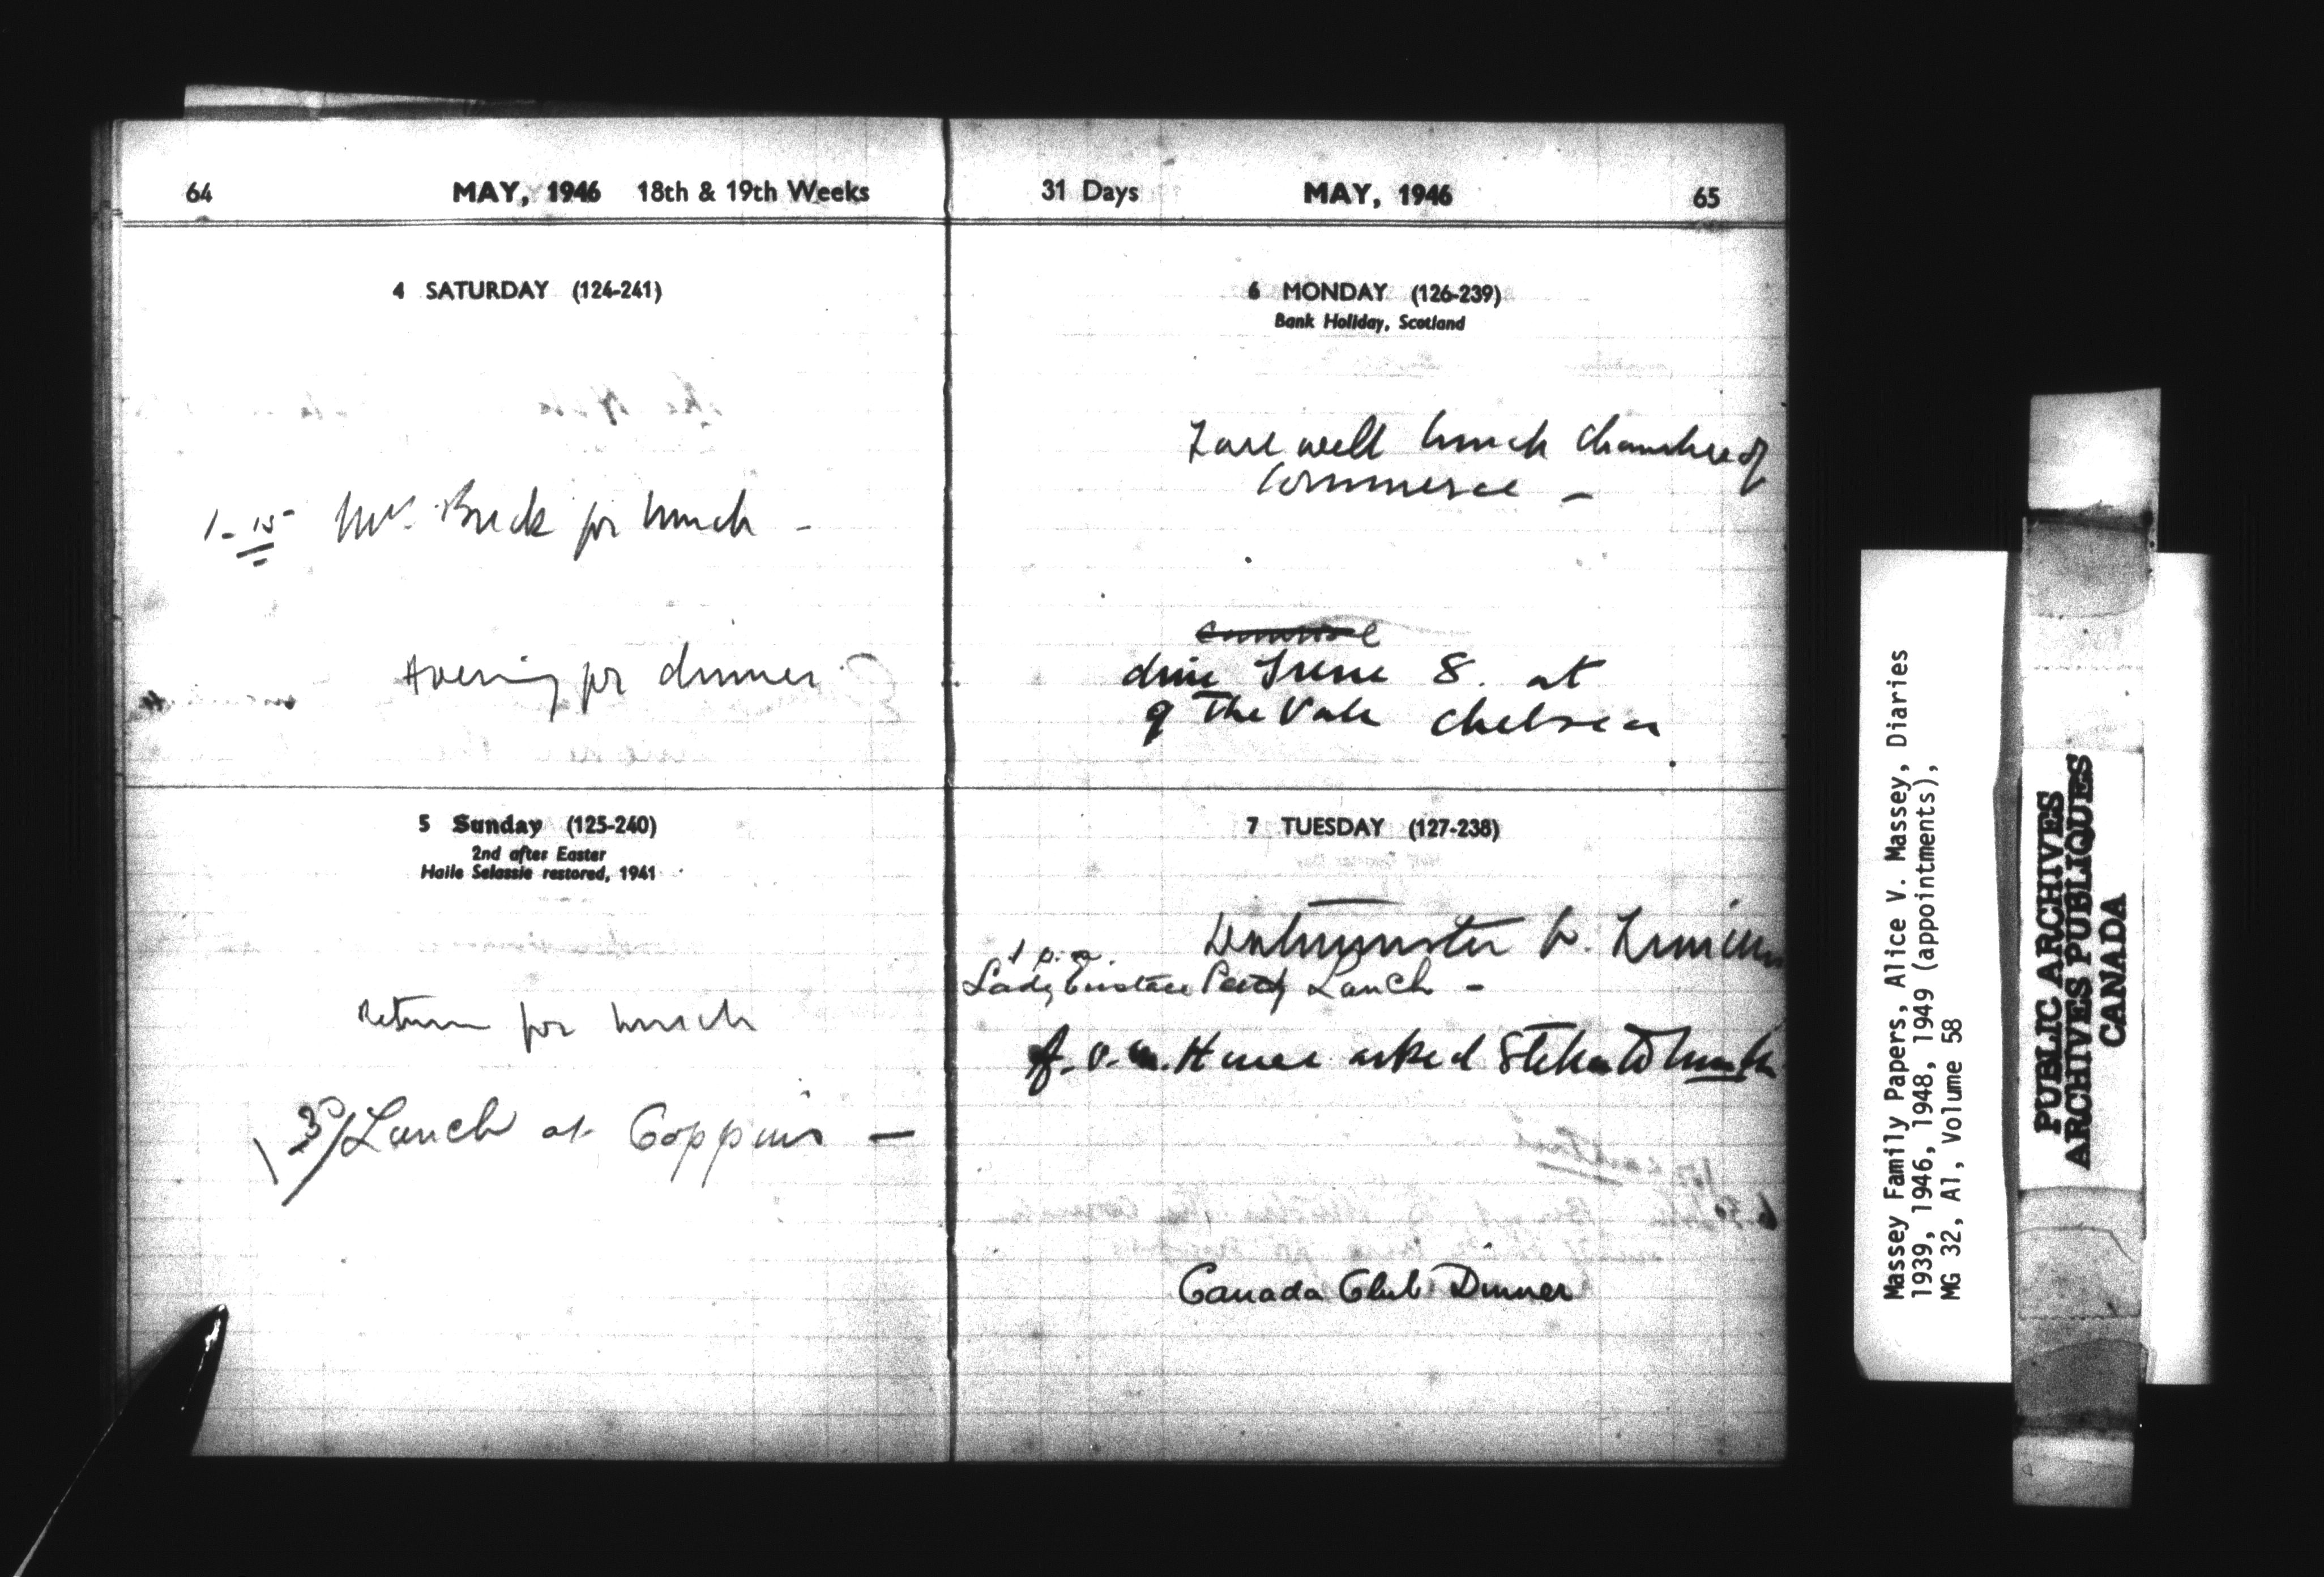 64 MAY, 1946 18th & 19th Weeks
4 SATURDAY (124-241)
1-15 Mrs. Buck for lunch -
for dinner
5 Sunday (125-240)
2nd after Easter
Haile Selassie restored, 1941
return for lunch
Lunch at Coppins —
31 Days MAY, 1946 65
6 MONDAY (126-239)
Bank Holiday, Scotland
Farewell lunch Chamber of
Commerce -
dine Irene S. at
9 The Vale Chelsea
7 TUESDAY (127-238)
Westminster
1 p.m.
Lady Eustace Percy Lunch -
asked to lunch
Canada Club Dinner
Massey Family Papers, Alice V. Massey, Diaries
1939, 1946, 1948, 1949 (appointments),
MG 32, A1, Volume 58
PUBLIC ARCHIVES
ARCHIVES PUBLIQUES
CANADA